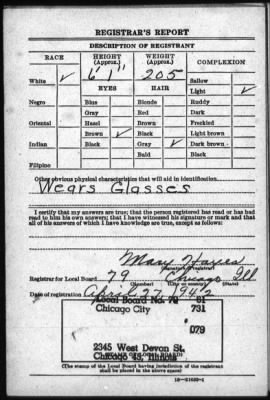 REGISTRAR'S REPORT
DESCRIPTION OF REGISTRANT
RACE HEIGHT (Approx.) WEIGHT (Approx.) COMPLEXION
White ✓ 6' 1" 205 Sallow
Light ✓
EYES HAIR
Negro Blue Blonde Ruddy
Gray Red Dark
Oriental Hazel Brown Freckled
Brown ✓ Black Light brown
Indian Black Gray ✓ Dark brown
Bald Black
Filipino
Other obvious physical characteristics that will aid in identification
Wears Glasses
I certify that my answers are true; that the person registered has read or has had
read to him his own answers; that I have witnessed his signature or mark and that
all of his answers of which I have knowledge are true, except as follows:
Mary Hayes
(Signature of registrar)
Registrar for Local Board 79 Chicago Ill
(Number) (City or county) (State)
Date of registration April 27 1942
Local Board No. 79 31
Chicago City 731
079
2345 West Devon St.
Chicago 45, Illinois
(The stamp of the Local Board having jurisdiction of the registrant
shall be placed in the above space)